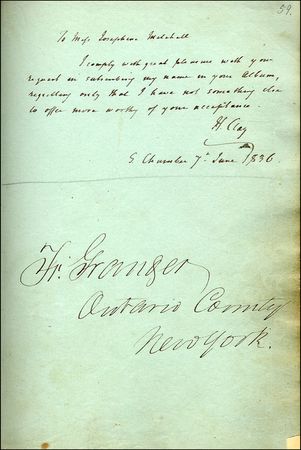 39.
To Miss Josephine Mitchell
I comply with great pleasure with your
request in subscribing my name in your Album,
regretting only that I have not something else
to offer more worthy of your acceptance.
H. Clay
S. Chamber 7th June 1836
Fr. Granger
Ontario County
New York.